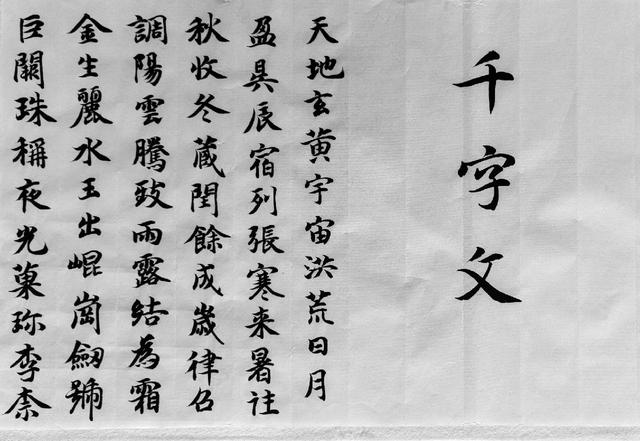 千字文
天地玄黄宇宙洪荒日月
盈昃辰宿列張寒来暑往
秋收冬藏閏餘成歲律召
調陽雲騰致雨露結為霜
金生麗水玉出崐崗劒號
巨闕珠稱夜光菓珎李柰